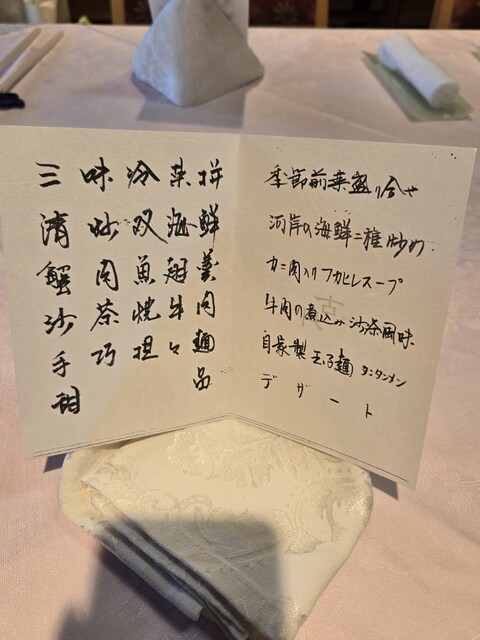 三味冷菜拼
清炒双海鮮
蟹肉魚翅羹
沙茶焼牛肉
手巧担々麺
甜品
季節前菜盛り合せ
河岸の海鮮二種炒め
カニ肉入りフカヒレスープ
牛肉の煮込み沙茶風味
自家製玉子麺 タンタンメン
デザート